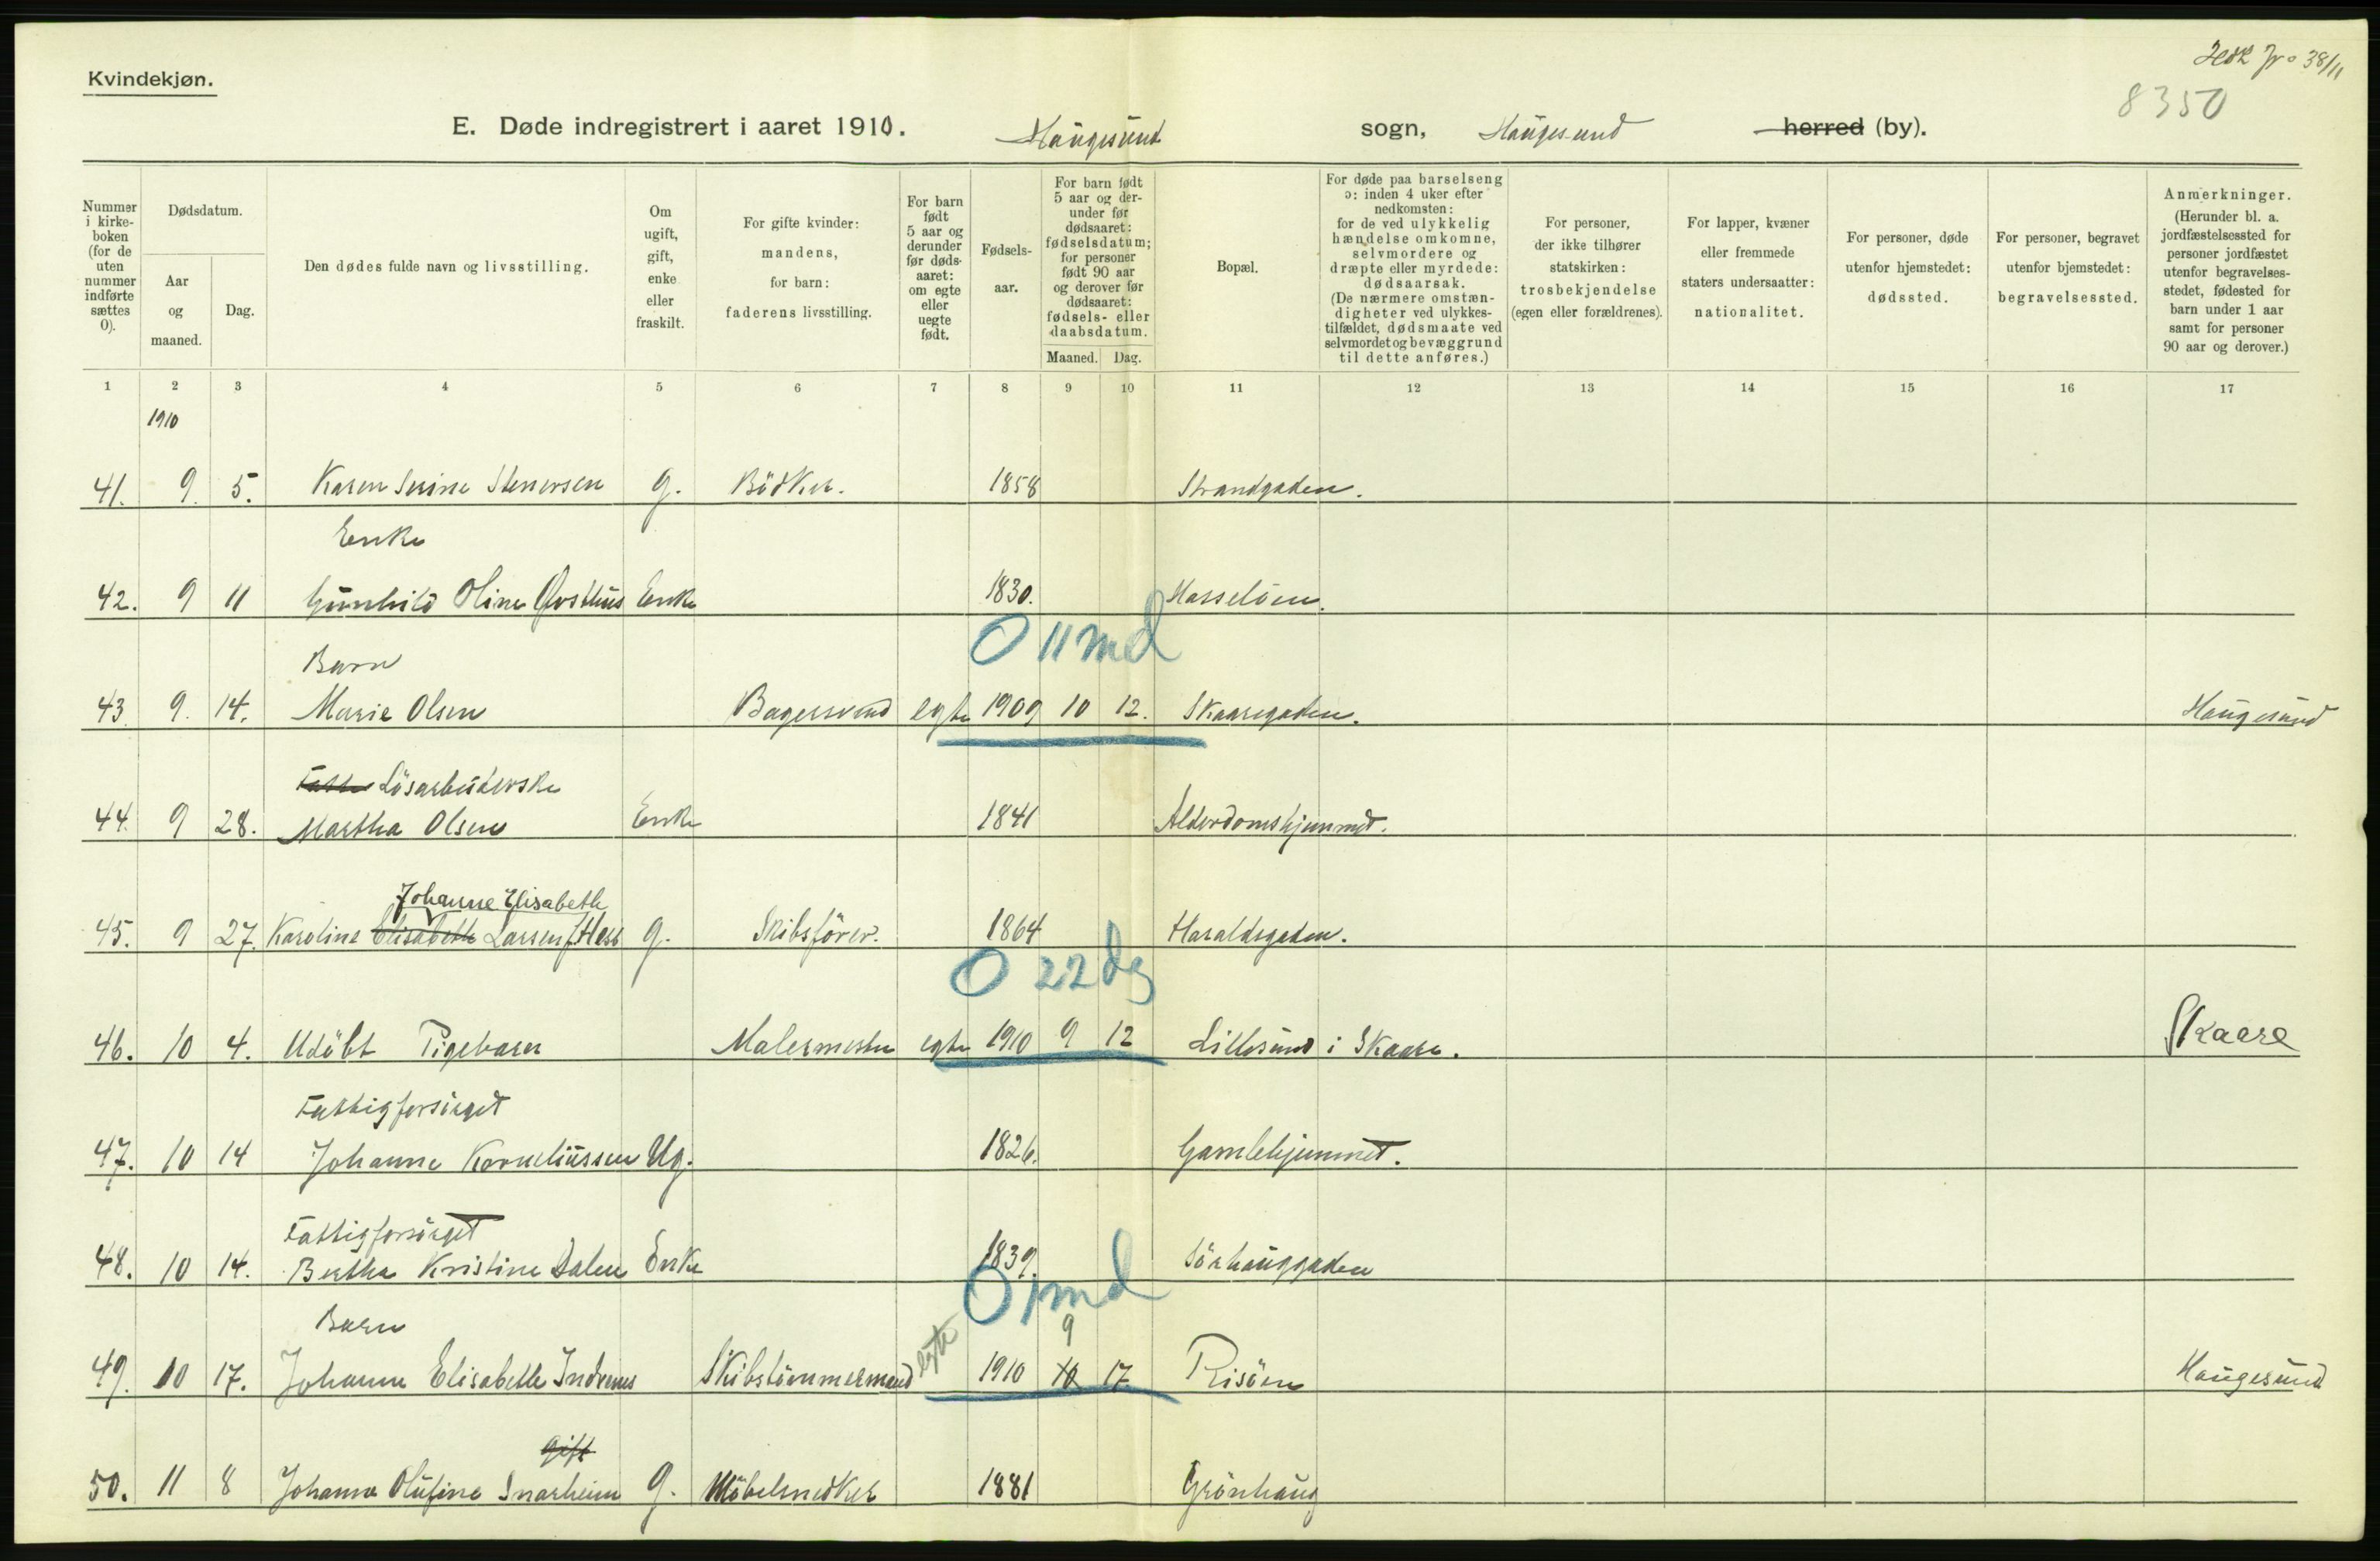 Kvindekjøn.
38/11
8350
E. Døde indregistrert i aaret 1910. Haugesund sogn, Haugesund herred (by).
Nummer i kirke-boken (for de uten nummer indførte sættes 0).
Dødsdatum.
Aar og maaned.
Dag.
Den dødes fulde navn og livsstilling.
Om ugift, gift, enke eller fraskilt.
For gifte kvinder: mandens, for barn: faderens livsstilling.
For barn født 5 aar og derunder før døds-aaret: om egte eller uegte født.
Fødsels-aar.
For barn født 5 aar og der-under før dødsaaret: fødselsdatum; for personer født 90 aar og derover før dødsaaret: fødsels- eller daabsdatum.
Maaned. Dag.
Bopæl.
For døde paa barselseng ɔ: inden 4 uker efter nedkomsten: for de ved ulykkelig hændelse omkomne, selvmordere og dræpte eller myrdede: dødsaarsak. (De nærmere omstæn-digheter ved ulykkes-tilfældet, dødsmaate ved selvmordet og bevæggrund til dette anføres.)
For personer, der ikke tilhører statskirken: trosbekjendelse (egen eller forældrenes).
For lapper, kvæner eller fremmede staters undersaatter: nationalitet.
For personer, døde utenfor hjemstedet: dødssted.
For personer, begravet utenfor bjemstedet: begravelsessted.
Anmerkninger. (Herunder bl. a. jordfæstelsessted for personer jordfæstet utenfor begravelses-stedet, fødested for barn under 1 aar samt for personer 90 aar og derover.)
1 2 3 4 5 6 7 8 9 10 11 12 13 14 15 16 17
1910
41. 9. 5. Karen Serine Stenersen g. Bödker. 1858 Strandgaden.
Enke
42. 9 11 Gunhild Oline Østhus Enke 1830. Hasselöen.
0 11 md
Barn
43 9. 14. Marie Olsen Bagersvend egte 1909 10 12. Skaaregaden. Haugesund
Lösarbeiderske
44. 9 28. Martha Olsen Enke 1841 Alderdomshjemmet.
Johanne Elisabeth
45. 9 27. Karoline Elisabeth Larsen f. Hess g. Skibsförer. 1864 Haraldsgaden.
0 22 dg
46. 10 4. Udöbt Pigebarn Malermester egte 1910 9 12 Lillesund i Skaare. Skaare
Fattigforsörget
47. 10 14 Johanne Korneliussen Ug. 1826. Gamlehjemmet.
Fattigforsörget
48. 10 14. Bertha Kristine Dalen Enke 1839. Sörhauggaden
0 1 md
Barn
9
49. 10 17. Johanne Elisabeth Indrenes Skibstömmermand egte 1910 10 17. Risöen Haugesund
gift
50. 11 8 Johanne Olufine Snarheim g. Möbelsnedker 1881 Grönhaug